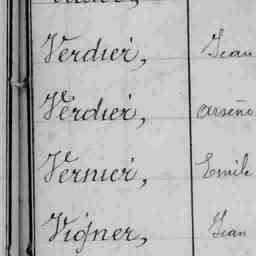 Verdier, Jean
Verdier, Arsène
Vernier, Emile
Vigner, Jean